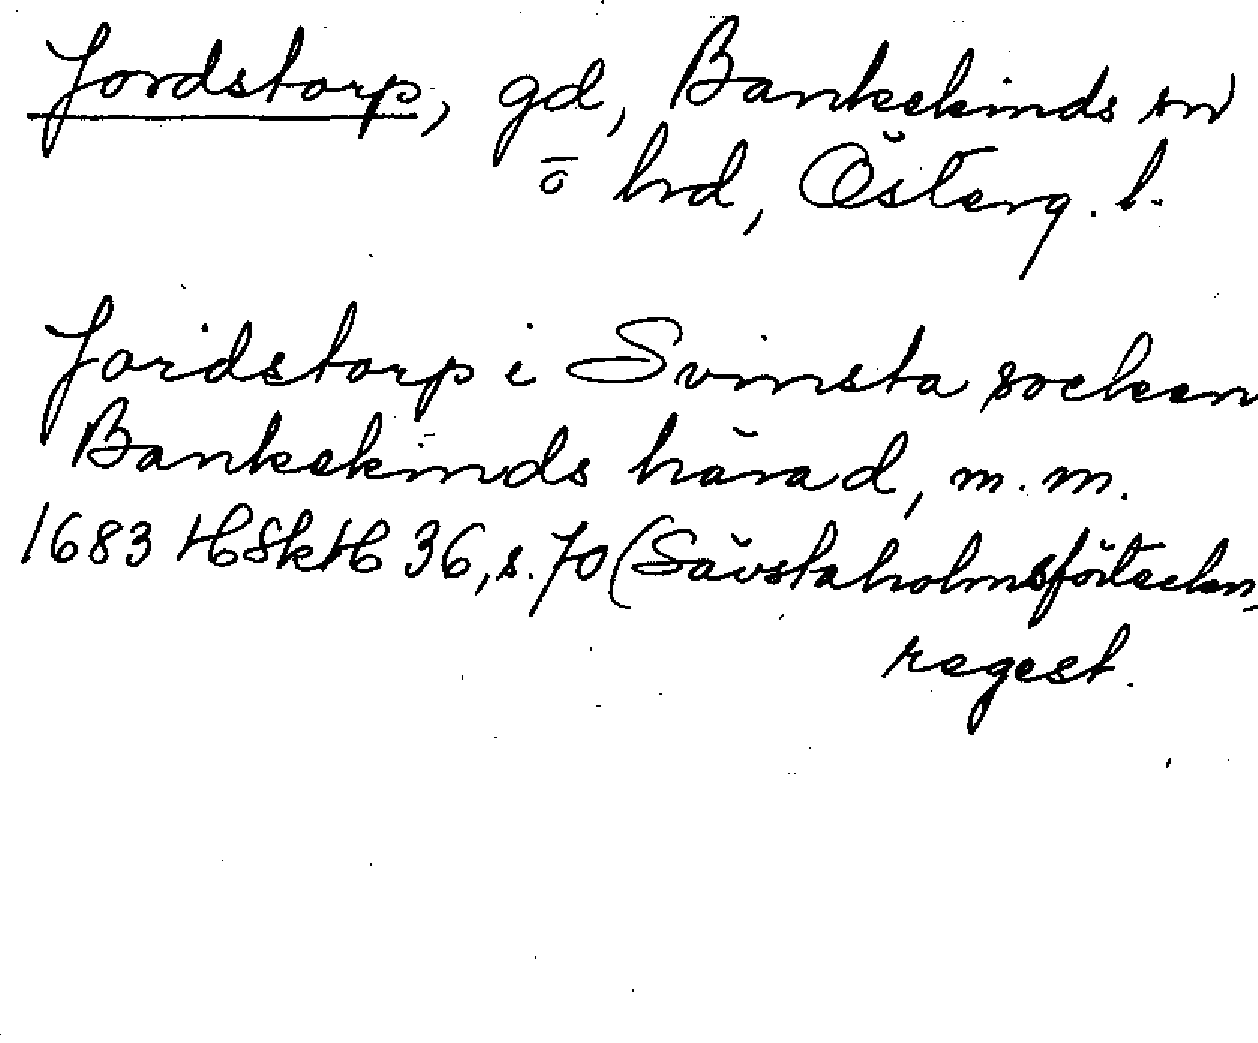 Jordstorp, gd, Bankekinds sn
o hrd, Österg. l.
Joridstorp i Svinsta socken
Bankekinds härad, m.m.
1683 HSkH 36, s. 70 (Sävstaholmsförteckn,
regest.